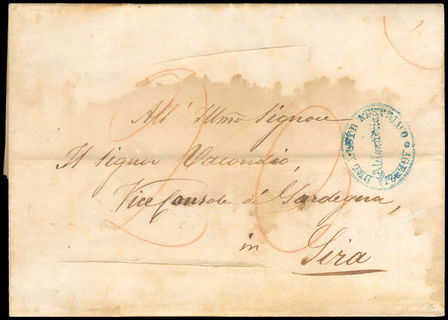 All' Illmo Signore
Il Signor Vacondio,
Vice Console di Sardegna,
in
Sira
20